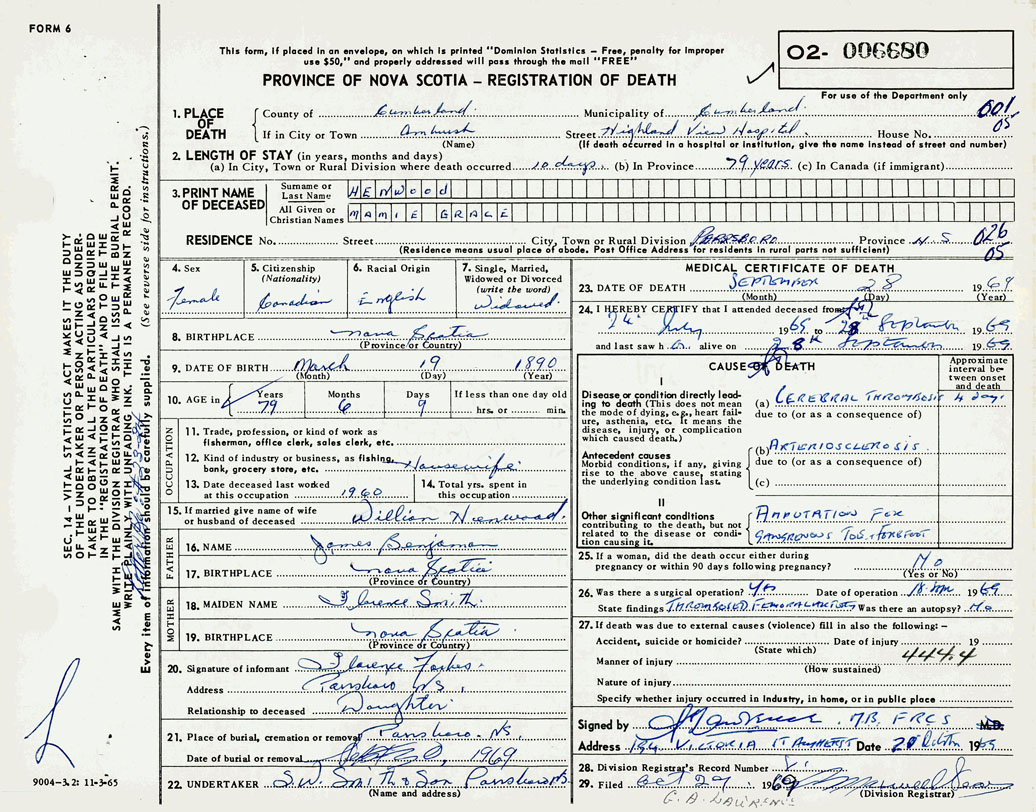 FORM 6
This form, if placed in an envelope, on which is printed "Dominion Statistics – Free, penalty for improper
use $50," and properly addressed will pass through the mail "FREE"
PROVINCE OF NOVA SCOTIA – REGISTRATION OF DEATH
O2- 006680
For use of the Department only
1. PLACE OF DEATH
County of Cumberland. Municipality of Cumberland. 001
If in City or Town Amherst Street Highland View Hospital. House No. 05
(Name) (If death occurred in a hospital or institution, give the name instead of street and number)
2. LENGTH OF STAY (in years, months and days)
(a) In City, Town or Rural Division where death occurred 10 days. (b) In Province 79 years. (c) In Canada (if immigrant)
3. PRINT NAME OF DECEASED
Surname or Last Name HENWOOD
All Given or Christian Names MAMIE GRACE
RESIDENCE No. Street City, Town or Rural Division PARRSBORO Province N.S. 026
(Residence means usual place of abode. Post Office Address for residents in rural parts not sufficient) 05
4. Sex
Female
5. Citizenship
(Nationality)
Canadian
6. Racial Origin
English
7. Single, Married,
Widowed or Divorced
(write the word)
Widowed.
8. BIRTHPLACE Nova Scotia
(Province or Country)
9. DATE OF BIRTH March 19 1890
(Month) (Day) (Year)
10. AGE in Years Months Days If less than one day old
79 6 9 hrs. or min.
OCCUPATION
11. Trade, profession, or kind of work as
fisherman, office clerk, sales clerk, etc.
12. Kind of industry or business, as fishing,
bank, grocery store, etc. Housewife
13. Date deceased last worked
at this occupation 1960
14. Total yrs. spent in
this occupation
15. If married give name of wife
or husband of deceased William Henwood.
FATHER
16. NAME James Benjamin
17. BIRTHPLACE Nova Scotia
(Province or Country)
MOTHER
18. MAIDEN NAME Florence Smith.
19. BIRTHPLACE Nova Scotia
(Province or Country)
20. Signature of informant Florence Forbes.
Address Parrsboro N.S.
Relationship to deceased Daughter.
21. Place of burial, cremation or removal Parrsboro. N.S.
Date of burial or removal 1969
22. UNDERTAKER S.W. Smith & Son Parrsboro N.S.
(Name and address)
MEDICAL CERTIFICATE OF DEATH
23. DATE OF DEATH SEPTEMBER 28 1969
(Month) (Day) (Year)
24. I HEREBY CERTIFY that I attended deceased from
24th July 1969 to 28th September 1969
and last saw h alive on 28th September 1969.
CAUSE OF DEATH
Approximate
interval be-
tween onset
and death
I
Disease or condition directly lead-
ing to death (This does not mean
the mode of dying, e.g., heart fail-
ure, asthenia, etc. It means the
disease, injury, or complication
which caused death.)
(a) CEREBRAL THROMBOSIS 4 days.
due to (or as a consequence of)
Antecedent causes
Morbid conditions, if any, giving
rise to the above cause, stating
the underlying condition last.
(b) ARTERIOSCLEROSIS.
due to (or as a consequence of)
(c)
II
Other significant conditions
contributing to the death, but not
related to the disease or condi-
tion causing it.
AMPUTATION FOR
GANGRENOUS TOES & FOREFOOT
25. If a woman, did the death occur either during
pregnancy or within 90 days following pregnancy? No
(Yes or No)
26. Was there a surgical operation? Yes Date of operation 18 1969
State findings THROMBOSED FEMORAL ARTERY Was there an autopsy? No
27. If death was due to external causes (violence) fill in also the following: –
Accident, suicide or homicide? Date of injury 19
(State which) 444.4
Manner of injury
(How sustained)
Nature of injury
Specify whether injury occurred in Industry, in home, or in public place
Signed by M.B, FRCS M.D.
Address 134 VICTORIA ST AMHERST Date 20 October 1969
28. Division Registrar's Record Number
29. Filed Oct 29 1969
(Division Registrar)
G. A. LAWRENCE
SEC. 14 – VITAL STATISTICS ACT MAKES IT THE DUTY
OF THE UNDERTAKER OR PERSON ACTING AS UNDER-
TAKER TO OBTAIN ALL THE PARTICULARS REQUIRED
IN THE "REGISTRATION OF DEATH" AND TO FILE THE
SAME WITH THE DIVISION REGISTRAR WHO SHALL ISSUE THE BURIAL PERMIT.
WRITE PLAINLY WITH UNFADING INK. THIS IS A PERMANENT RECORD.
Every item of information should be carefully supplied. (See reverse side for instructions.)
9004–3.2: 11-3-65